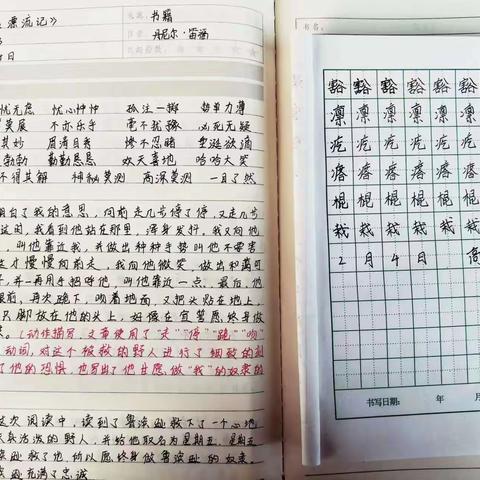 漂流记》
来源: 书籍
作者: 丹尼尔·笛福
日
忧无虑 忧心忡忡 孤注一掷 势单力薄
莫展 不亦乐乎 毫不犹豫 必死无疑
其妙 眉清目秀 惨不忍睹 垂涎欲滴
勃勃 勤勤恳恳 欢天喜地 哈哈大笑
不得其解 神秘莫测 高深莫测 一目了然
明白了我的意思，向前走几步停了停，又走几步
这回，我看到他站在那里，浑身发抖，我又向他
，叫他靠近我，并做出种种手势叫他不要害
这才慢慢向前走，我向他微笑，做出和蔼可
，并一再用手招呼他，叫他靠近一点。最后，他
跟前，再次跪下，吻着地面，又把头贴在地上，
只脚放在他的头上，好像在宣誓愿终身做
。(动作描写，文章使用了"走""停""跪""吻"
动词，对这个被救的野人进行了细致的刻
了他的恐惧，也写出了他甘愿做"我"的奴隶的
这次阅读中，读到了鲁滨逊救下了一个心地
的野人，并给他取名为星期五，星期五
救了他，所以愿终身做鲁滨逊的奴隶。
充满了忠诚
书名:
豁 豁 豁 豁 豁 豁
凛 凛 凛 凛 凛 凛
疙 疙 疙 疙 疙 疙
瘩 瘩 瘩 瘩 瘩 瘩
棍 棍 棍 棍 棍 棍
栽 栽 栽 栽 栽 栽
2 月 4 日
书写日期: 年 月